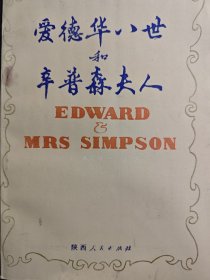 爱德华八世
和
辛普森夫人
EDWARD
&
MRS SIMPSON
陕西人民出版社